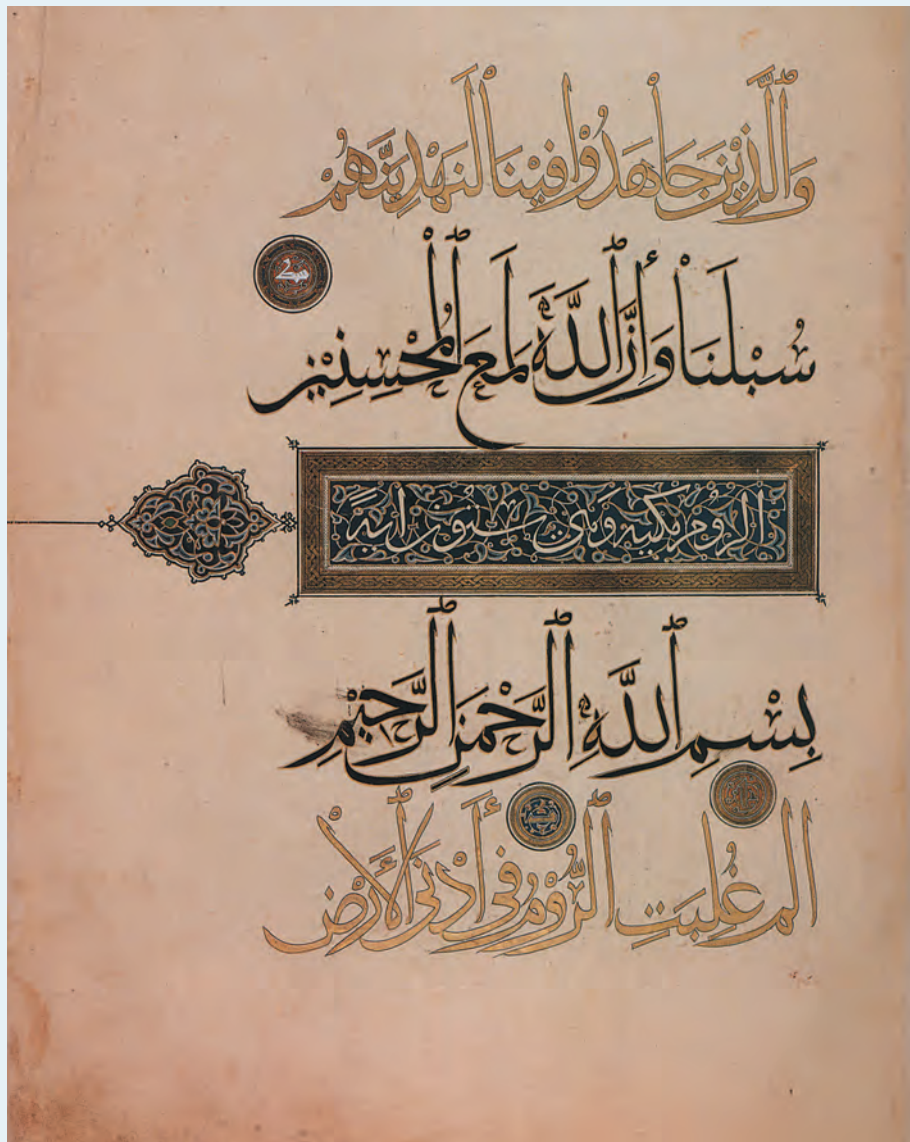 وَالَّذِيْنَ جَاهَدُوْا فِيْنَا لَنَهْدِيَنَّهُمْ
سُبْلَنَا وَإِنَّ اللَّهَ لَمَعَ الْمُحْسِنِيْنَ
الروم مكية وهي ستون اية
بِسْمِ اللَّهِ الرَّحْمَنِ الرَّحِيْمِ
الم غُلِبَتِ الرُّوْمُ فِي أَدْنَى الْأَرْضِ